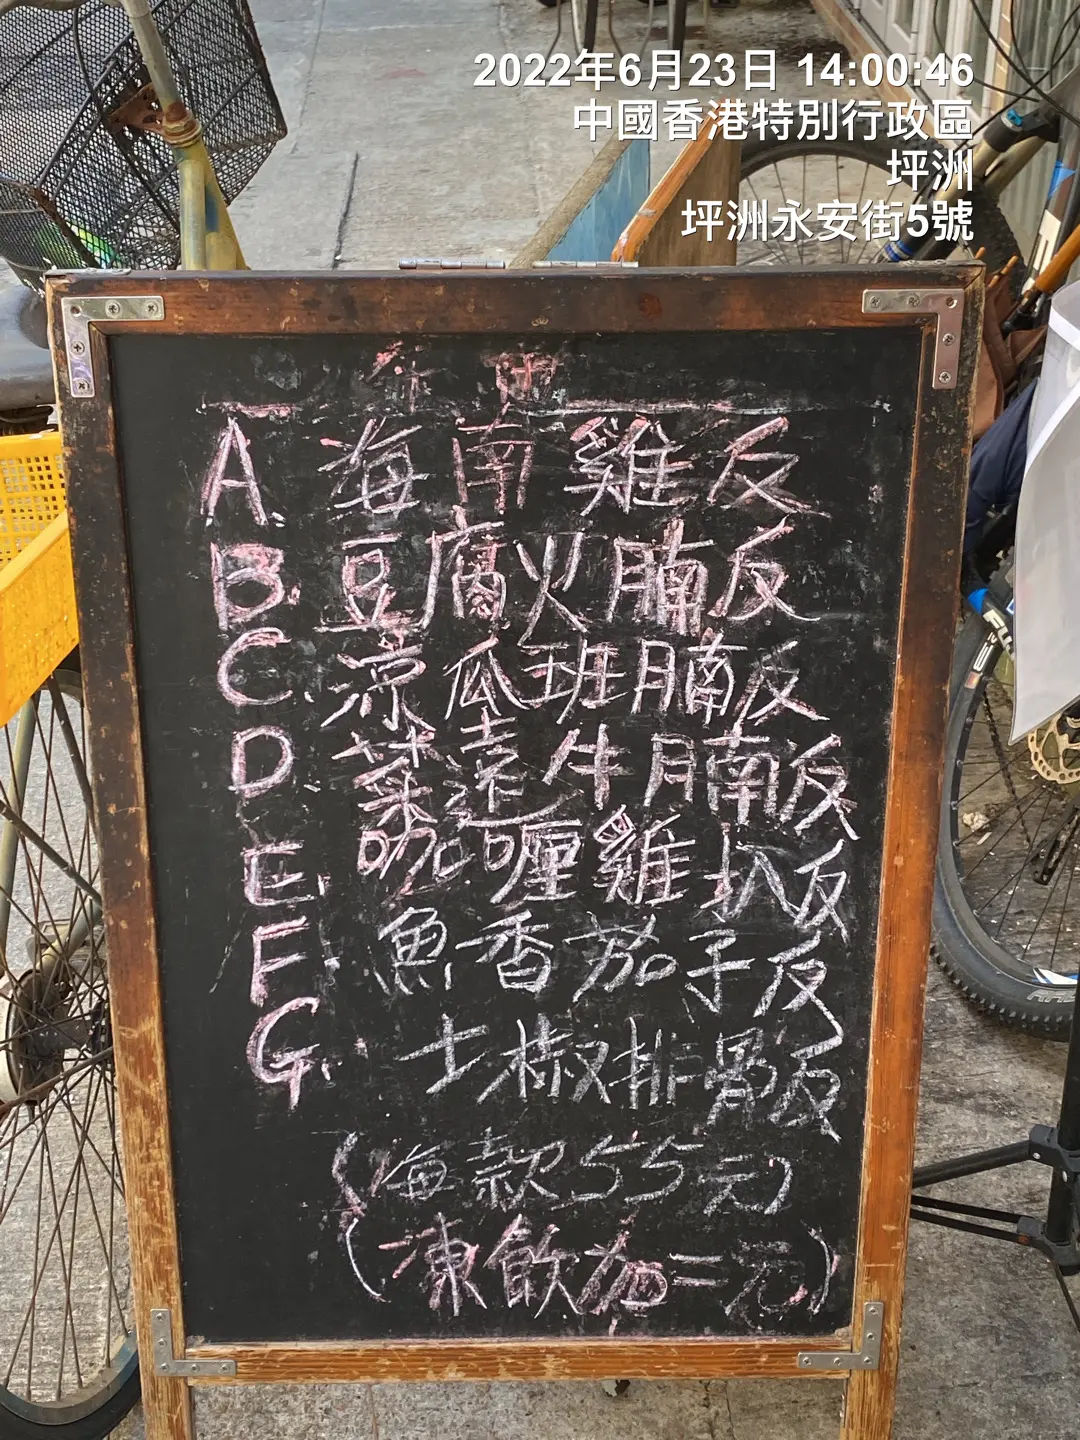 2022年6月23日 14:00:46
中國香港特別行政區
坪洲
坪洲永安街5號
午市
A. 海南雞反
B. 豆腐火腩反
C. 涼瓜班腩反
D. 菜遠牛腩反
E. 咖喱雞扒反
F. 魚香茄子反
G. 士椒排骨反
(每款55元)
(凍飲加二元)
SL